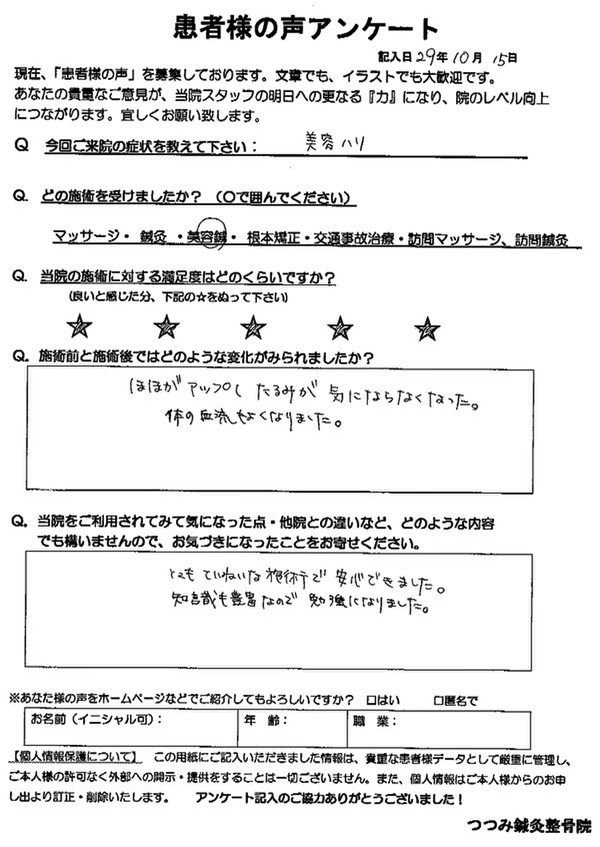 患者様の声アンケート
記入日29年10月15日
現在、「患者様の声」を募集しております。文章でも、イラストでも大歓迎です。
あなたの貴重なご意見が、当院スタッフの明日への更なる『力』になり、院のレベル向上
につながります。宜しくお願い致します。
Q 今回ご来院の症状を教えて下さい： 美容ハリ
Q. どの施術を受けましたか？（〇で囲んでください）
マッサージ・ 鍼灸 ・美容鍼・ 根本矯正・交通事故治療・訪問マッサージ、訪問鍼灸
Q. 当院の施術に対する満足度はどのくらいですか？
（良いと感じた分、下記の☆をぬって下さい）
Q. 施術前と施術後ではどのような変化がみられましたか？
ほほが アップし たるみが 気にならなくなった。
体の血流もよくなりました。
Q. 当院をご利用されてみて気になった点・他院との違いなど、どのような内容
でも構いませんので、お気づきになったことをお寄せください。
とても ていねいな 施術で 安心できました。
知識も豊富なので 勉強になりました。
※あなた様の声をホームページなどでご紹介してもよろしいですか？ □はい □匿名で
お名前（イニシャル可）： 年 齢： 職 業：
【個人情報保護について】 この用紙にご記入いただきました情報は、貴重な患者様データとして厳重に管理し、
ご本人様の許可なく外部への開示・提供をすることは一切ございません。また、個人情報はご本人様からのお申
し出より訂正・削除いたします。 アンケート記入のご協力ありがとうございました！
つつみ鍼灸整骨院